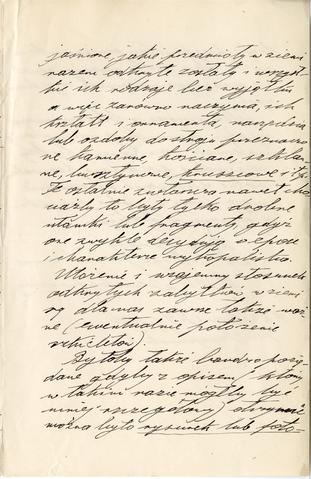 jaśnione, jakie przedmioty w ziemi
razem odkryte zostały i wszyst-
kie ich rodzaje bez wyjątku
a więc zarówno naczynia, ich
kształt i ornamenta, narzędzia
lub ozdoby do stroju przeznaczo-
ne kamienne, kościane, szkla-
ne, bursztynowe, kruszcowe i t.p.
Te ostatnie zwłaszcza nawet cho-
ciażby to były tylko drobne
ułamki lub fragmenty, gdyż
one zwykle decydują o epoce
i charakterze wykopaliska.
Ułożenie i wzajemny stosunek
odkrytych zabytków w ziemi
są dla nas zawsze także waż-
ne (ewentualnie położenie
szkieletów).
Byłoby także bardzo pożą-
dane gdyby z opisem, (który
w takim razie mógłby być
mniej szczegółowy) otrzymać
można było rysunek lub foto-